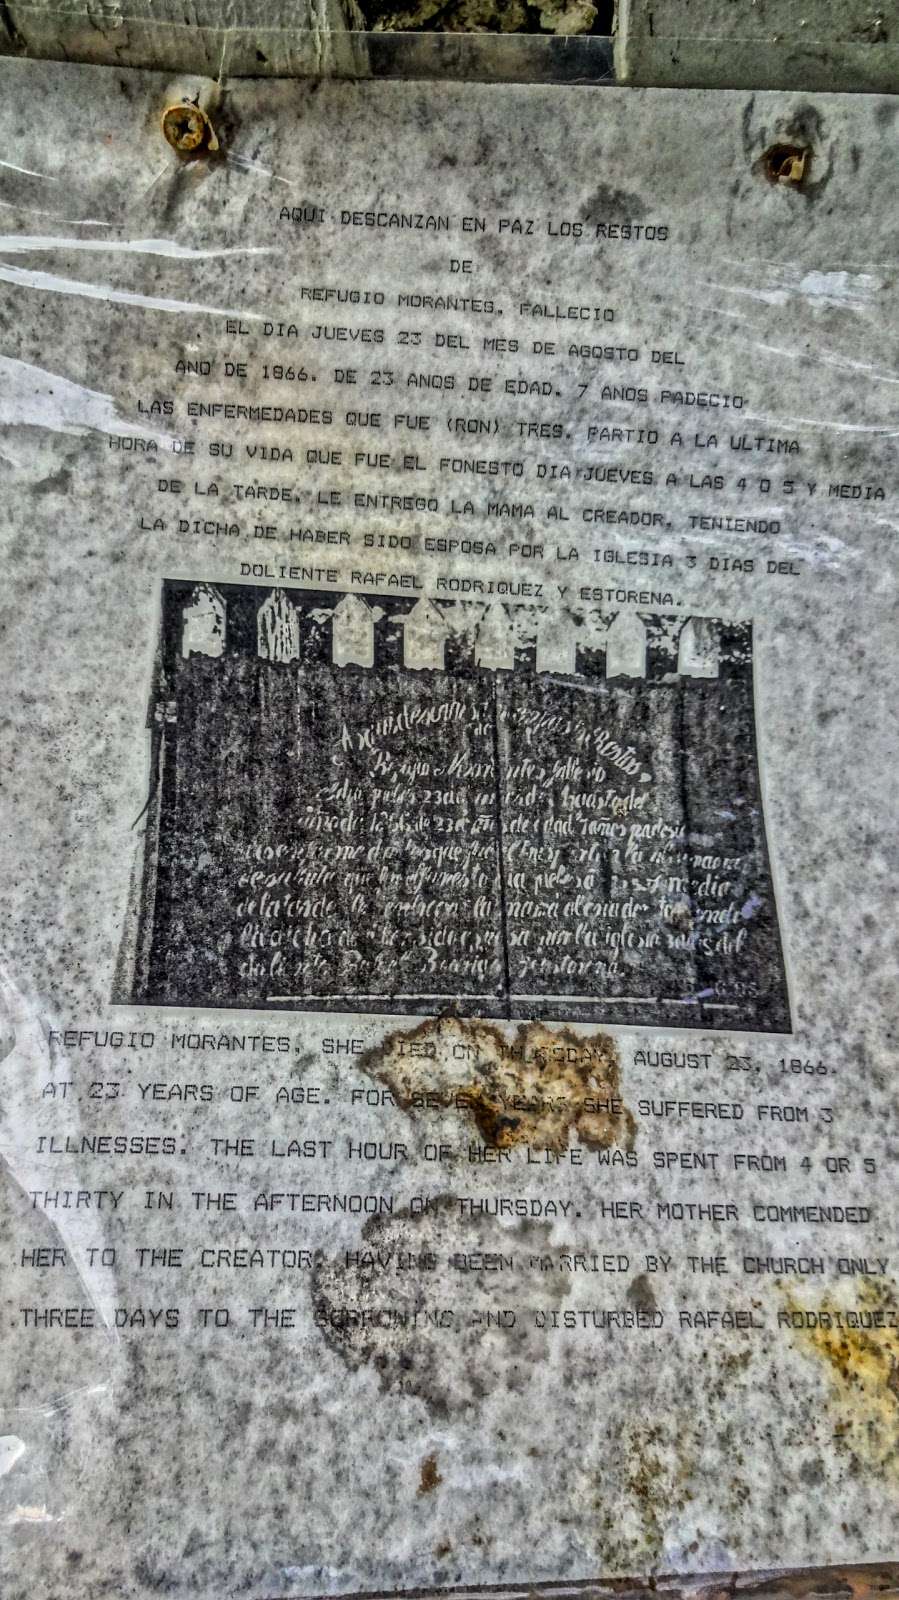 AQUI DESCANZAN EN PAZ LOS RESTOS
DE
REFUGIO MORANTES. FALLECIO
EL DIA JUEVES 23 DEL MES DE AGOSTO DEL
ANO DE 1866. DE 23 ANOS DE EDAD. 7 ANOS PADECIO
LAS ENFERMEDADES QUE FUE (RON) TRES. PARTIO A LA ULTIMA
HORA DE SU VIDA QUE FUE EL FONESTO DIA JUEVES A LAS 4 O 5 Y MEDIA
DE LA TARDE. LE ENTREGO LA MAMA AL CREADOR. TENIENDO
LA DICHA DE HABER SIDO ESPOSA POR LA IGLESIA 3 DIAS DEL
DOLIENTE RAFAEL RODRIQUEZ Y ESTORENA.
Restos
fallesio
23
de 23 años de edad 7 años
que
media
de la la mama
por la iglesia del
REFUGIO MORANTES. SHE DIED ON THURSDAY, AUGUST 23, 1866.
AT 23 YEARS OF AGE. FOR SEVEN YEARS SHE SUFFERED FROM 3
ILLNESSES. THE LAST HOUR OF HER LIFE WAS SPENT FROM 4 OR 5
THIRTY IN THE AFTERNOON ON THURSDAY. HER MOTHER COMMENDED
HER TO THE CREATOR. HAVING BEEN MARRIED BY THE CHURCH ONLY
THREE DAYS TO THE SORROWING AND DISTURBED RAFAEL RODRIQUEZ